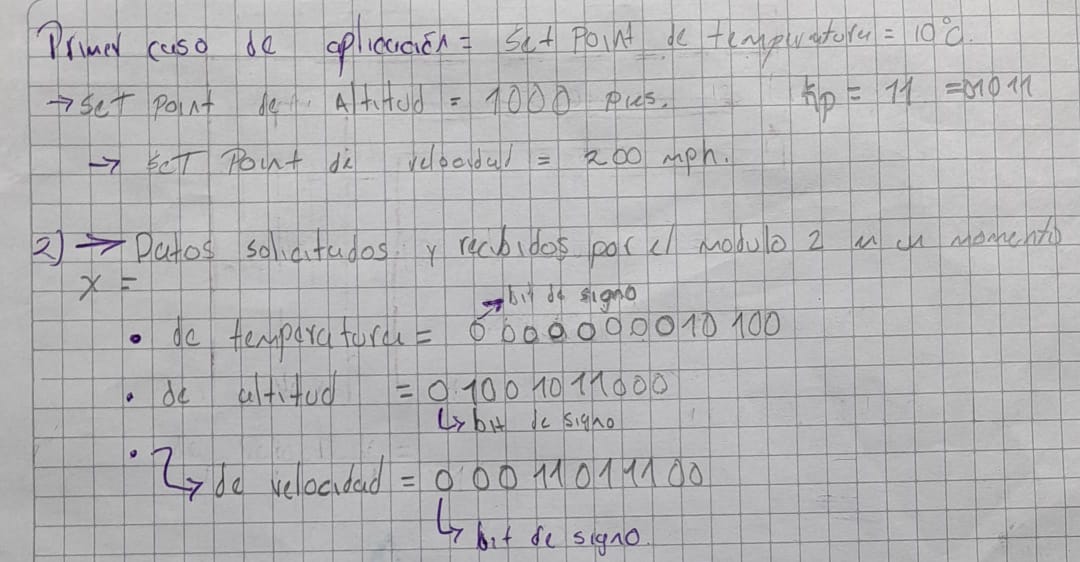 Primer caso de aplicación = Set Point de temperatura = 10°C.
→ Set point de Altitud = 1000 pies. Kp = 11 = 01011
→ SET Point de velocidad = 200 mph.
2) → Datos solicitados y recibidos por el modulo 2 en un momento
x =
→ bit de signo
• de temperatura = 0000000010100
• de altitud = 01001011000
↳ bit de signo
• ↳ de velocidad = 00011011100
↳ bit de signo.